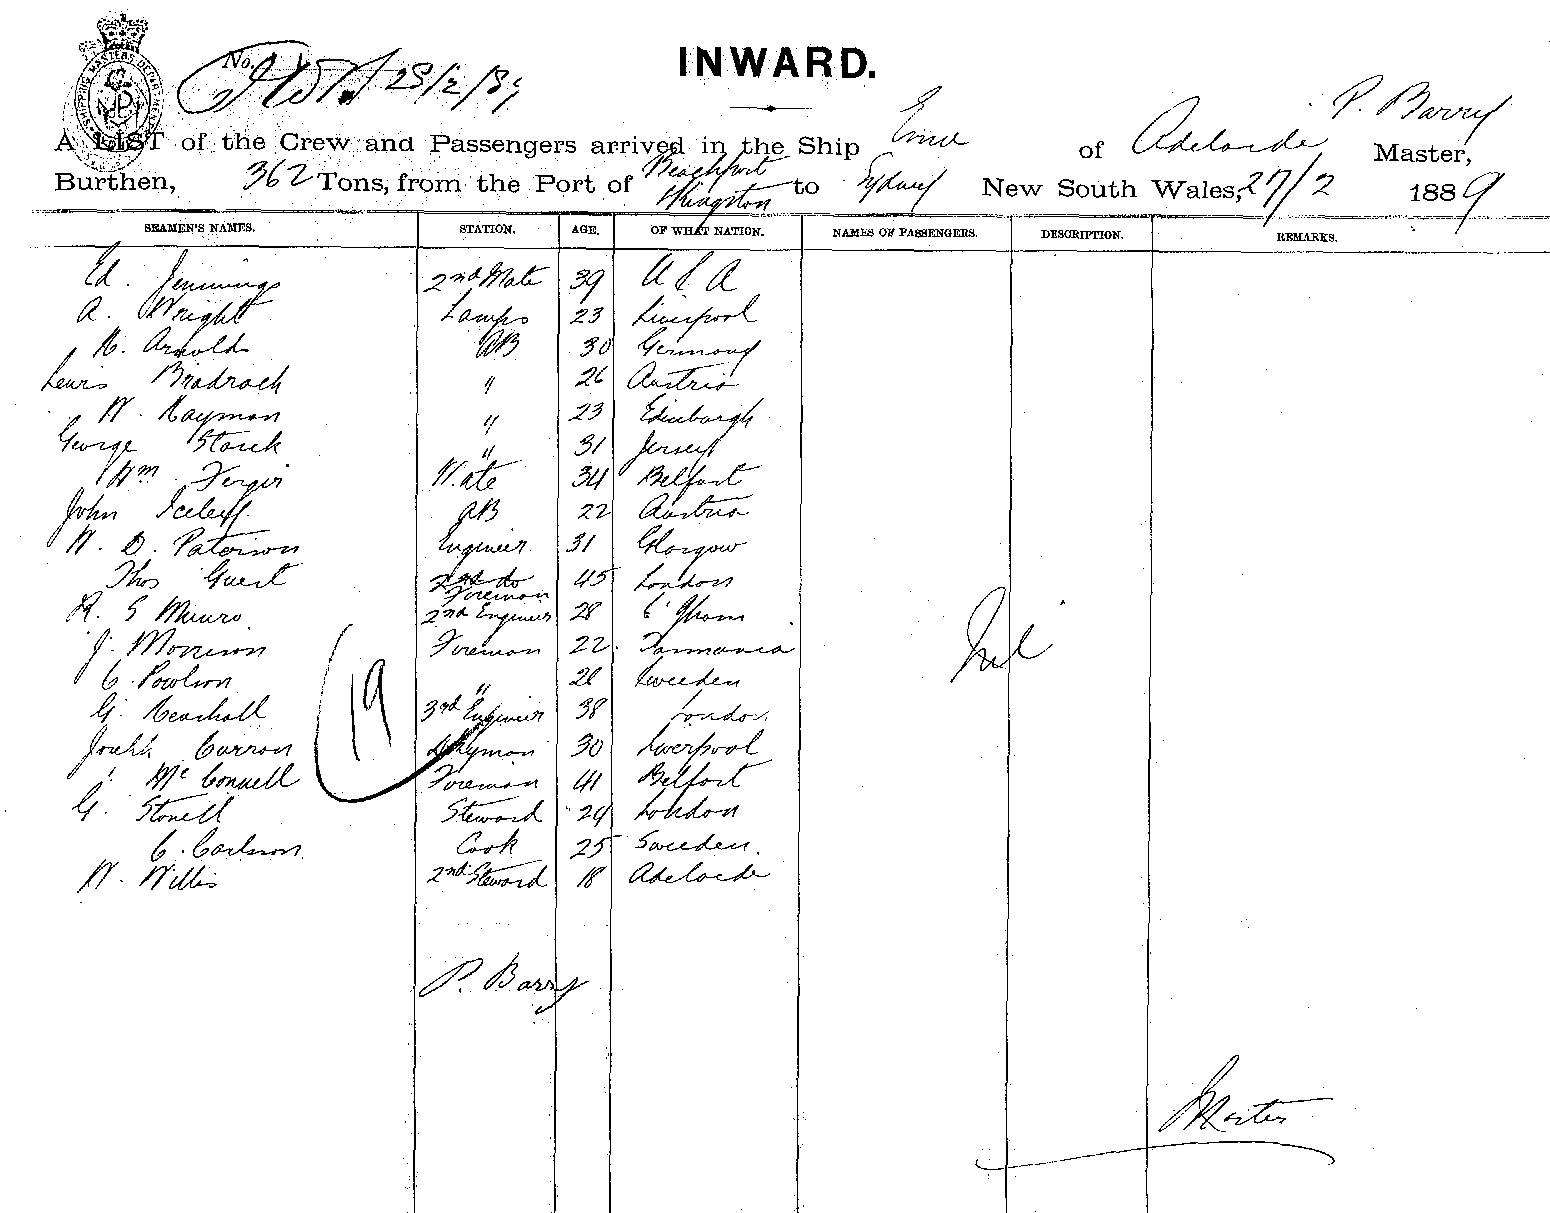 INWARD.
No. 28/2/89
A LIST of the Crew and Passengers arrived in the Ship of Adelaide P. Barry Master,
Burthen, 362 Tons, from the Port of Beachport Kingston to Sydney New South Wales, 27/2 1889
SEAMEN'S NAMES. STATION. AGE. OF WHAT NATION. NAMES OF PASSENGERS. DESCRIPTION. REMARKS.
Ed. Jennings 2nd Mate 39 U S A
A. Wright Lamps 23 Liverpool
H. Arnolds AB 30 Germany
Lewis " 26 Austria
W. Hayman " 23 Edinburgh
George Storek " 31 Jersey
Wm Mate 34 Belfast
John AB 22 Austria
W. D. Paterson Engineer 31 Glasgow
Thos Guest 2nd do Fireman 45 London
R. S Munro 2nd Engineer 28
J. Morrison Fireman 22 Tasmania
C. Powlson " 28 Sweden
G. 3rd Engineer 38 London
Joseph Curran 30 Liverpool
" McConnell Fireman 41 Belfast
G. Stonell Steward 24 London
C. Carlson Cook 25 Sweden.
W. Willis 2nd Steward 18 Adelaide
Nil
19
P. Barry
Master